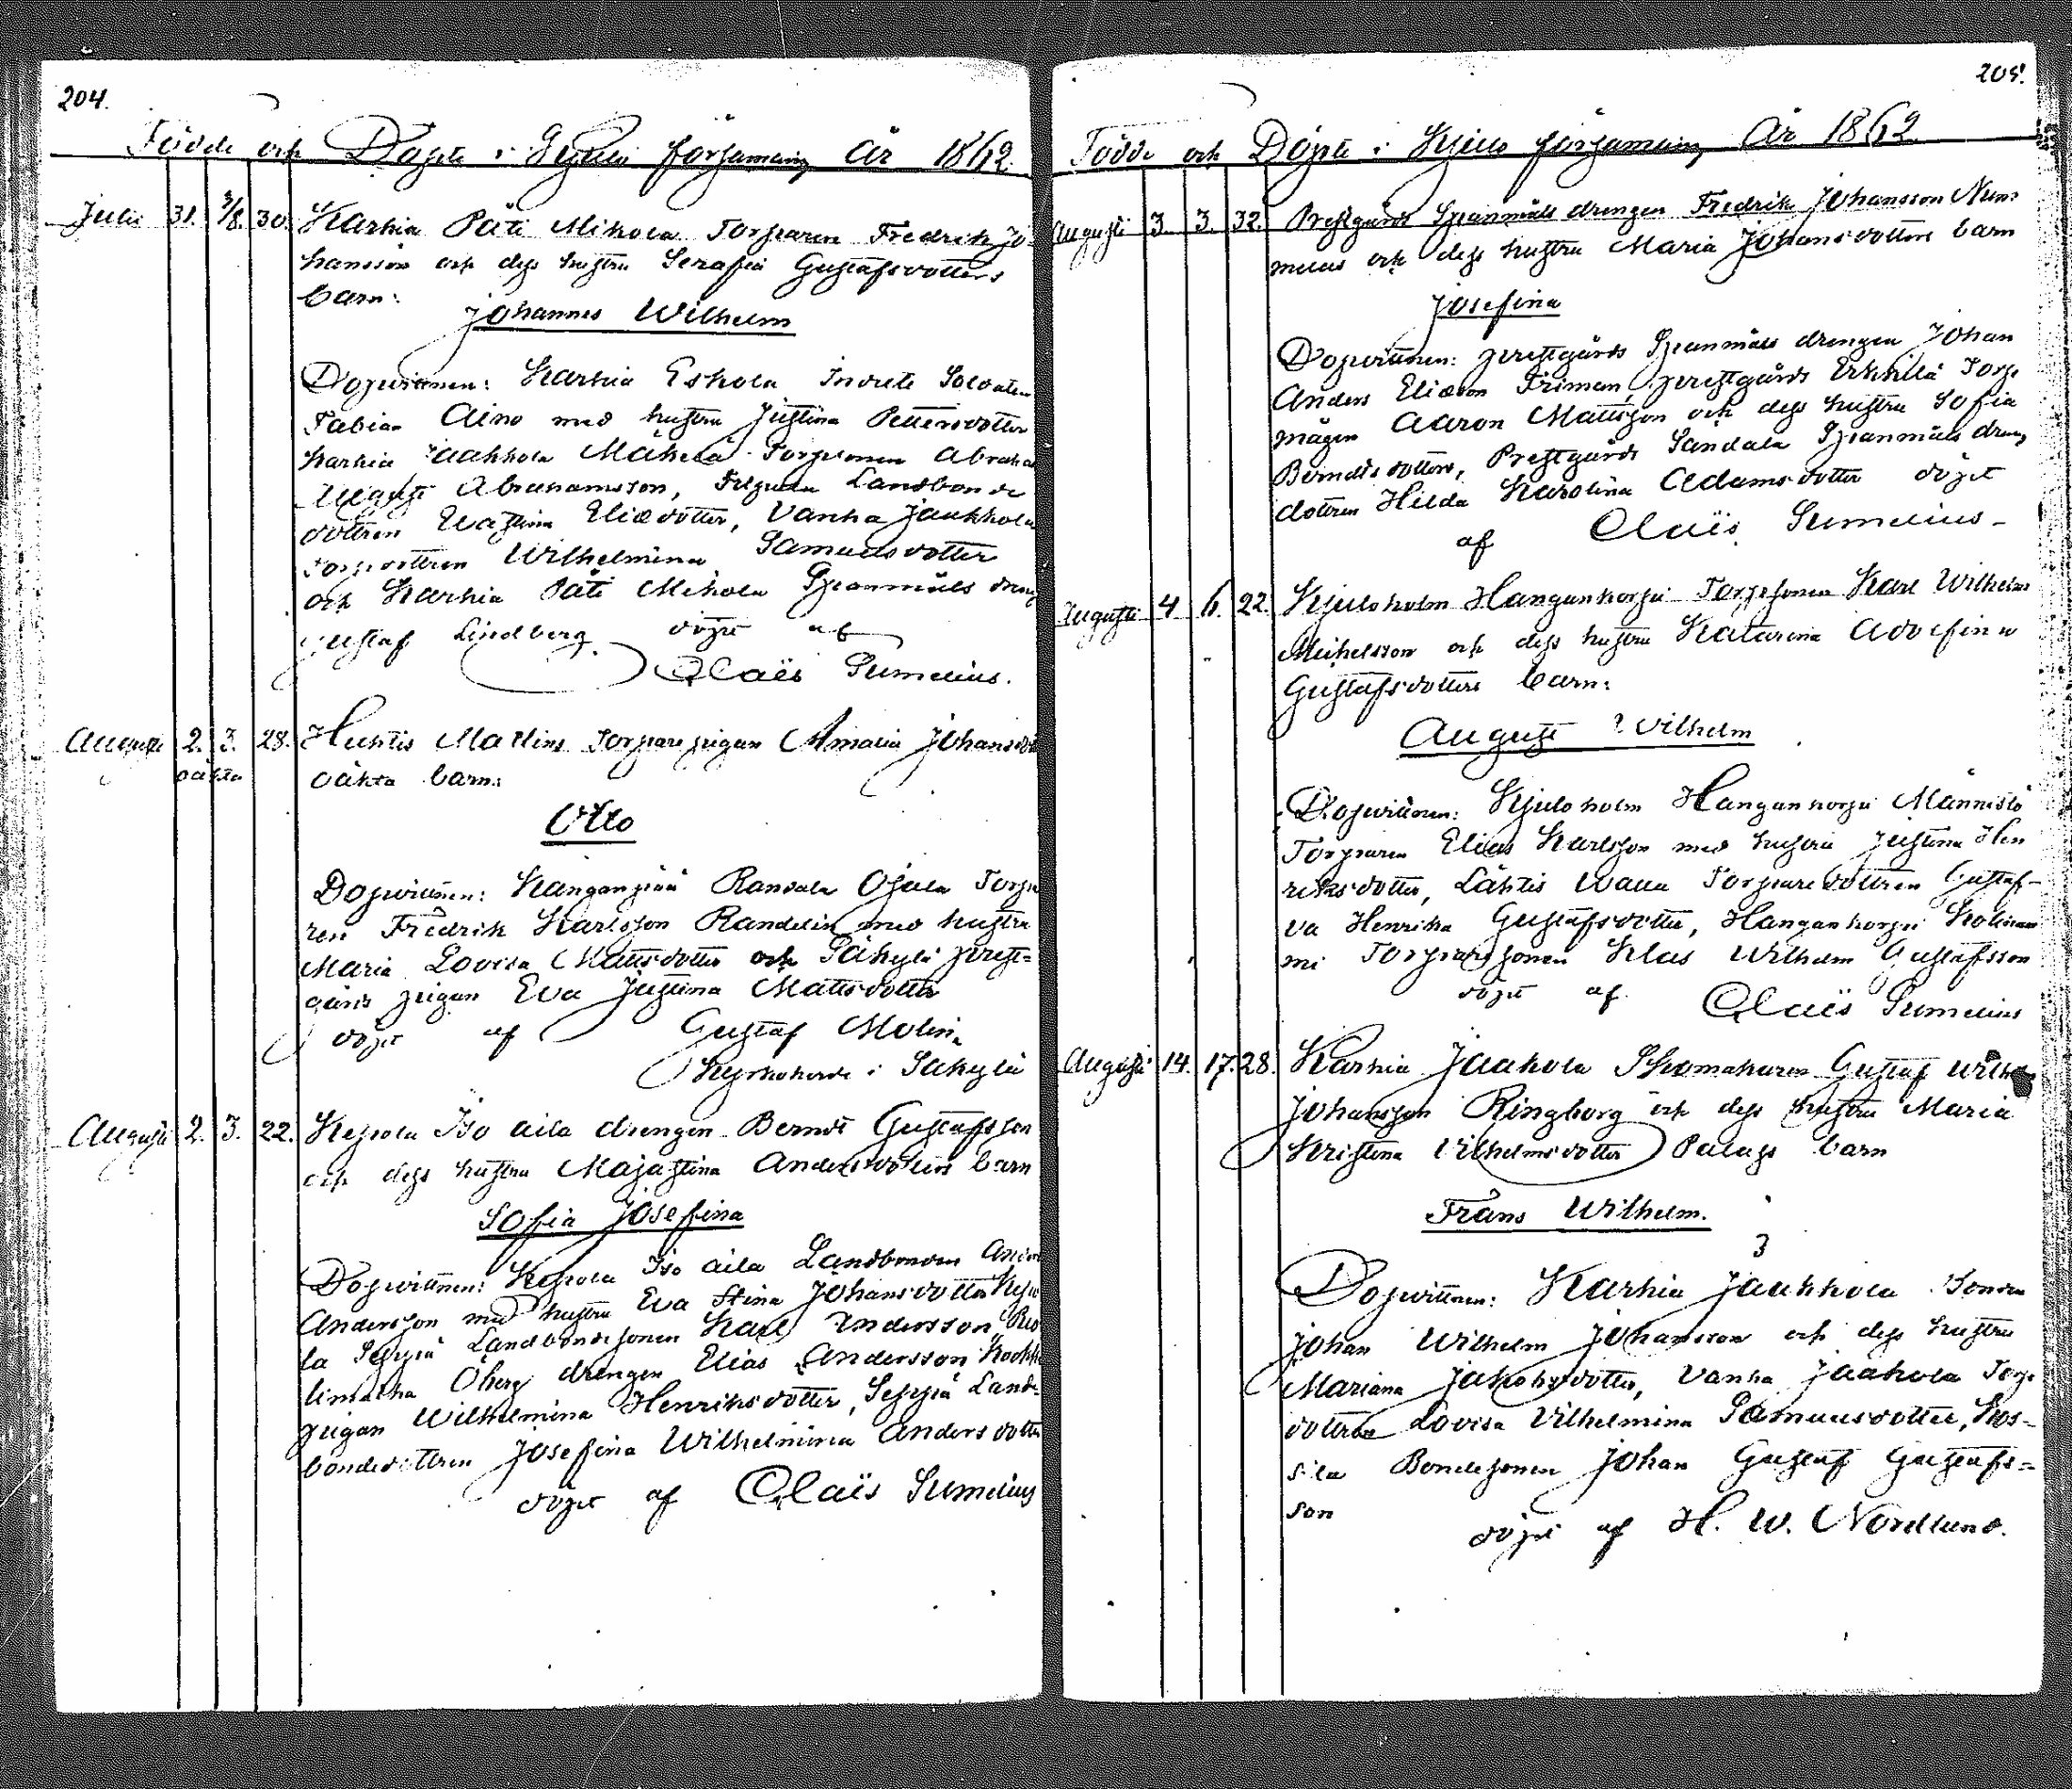 204.
Födde och Döpte i Kjulo församling År 1862.
Julii 31. 3/8. 30. Karhia Päti Mikola Torparen Fredrik Jo-
hansson och dess hustru Serafia Gustafsdotters
barn:
Johannes Wilhelm
Dopvittnen: Karhia Eskola Inrote Soldaten
Fabian Aino med hustru Justina Pettersdotter
Karhia Jaakkola Mäkelä Torpsonen Abraham
August Abrahamsson, Landbonde
dottren Evastina Eliædotter, Vanha Jaakkola
Torpdottren Wilhelmina Samuelsdotter
och Karhia Päti Mikola Spanmåls dreng
Gustaf Lindberg döpt af
Claës Sumelius.
Augusti 2. 3. 28. Huhtis Mattins Torpare pigan Amalia Johansdot
oäkta oäkta barn:
Otto
Dopvittnen: Kanganpää Randala Ojala Torpa
ren Fredrik Karlsson Randelin med hustru
Maria Lovisa Mattsdotter och Säkylä prest-
gårds pigan Eva Justina Mattsdotter
döpt af Gustaf Molin.
Kyrkoherde i Säkylä
Augusti 2. 3. 22. Kepola Iso aila drengen Berndt Gustafsson
och dess hustru Majastina Andersdotters barn
Sofia Josefina
Dopvittnen: Kepola Iso aila Landbonden Anders
Andersson med hustru Eva Stina Johansdotter Kepo
la Seppä Landbondesonen Karl Andersson
Öberg drengen Elias Andersson
pigan Wilhelmina Henriksdotter, Seppä Land-
bondedottren Josefina Wilhelmina Andersdotter
döpt af Claës Sumelius
205.
Födde och Döpte i Kjulo församling År 1862
Augusti 3. 3. 32. Prestgårds Spanmåls drengen Fredrik Johansson Num
melin och dess hustru Maria Johansdotters barn
Josefina
Dopvittnen: prestgårds Spanmåls drengen Johan
Anders Eliæson Friman, prestgårds Erkkilä Torp
mågen Aaron Mattsson och dess hustru Sofia
Berndtsdotter, Prestgårds Sandala Spanmåls dreng
dottren Hilda Karolina Adamsdotter döpt
af Claës Sumelius
Augusti 4 6. 22. Kjuloholm Hangankorpi Torpsonen Karl Wilhelm
Mickelsson och dess hustru Katarina Adolfina
Gustafsdotters barn:
August Vilhelm
Dopvittnen: Kjuloholm Hangankorpi Männistö
Torparen Elias Karlsson med hustru Justina Hen
riksdotter, Lähtis Torparedottren Gustaf-
va Henrika Gustafsdotter, Hangankorpi
Torparesonen Klas Wilhelm Gustafsson
döpt af Claës Sumelius
Augusti 14. 17. 28. Karhia Jaakola Skomakaren Gustaf Wilhelm
Johansson Ringborg och dess hustru Maria
Kristina Vilhelmsdotter Palugs barn
Frans Wilhelm.
3
Dopvittnen: Karhia Jaakkola Bonden
Johan Wilhelm Johansson och dess hustru
Mariana Jakobsdotter, Vanha Jaakola Torp
dottren Lovisa Vilhelmina Samuelsdotter, Kos-
sila Bondesonen Johan Gustaf Gustafs-
son
döpt af H. W. Nordlund.